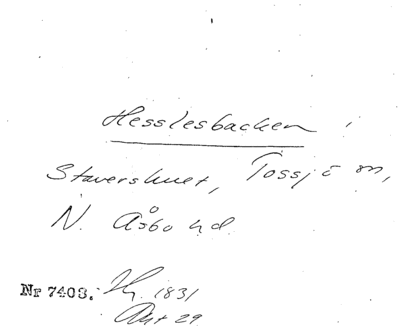 Hesslesbacken
Stavershuset, Tossjö m,
N. Åsbo hd.
Nr 7408. 1831
Akt 29